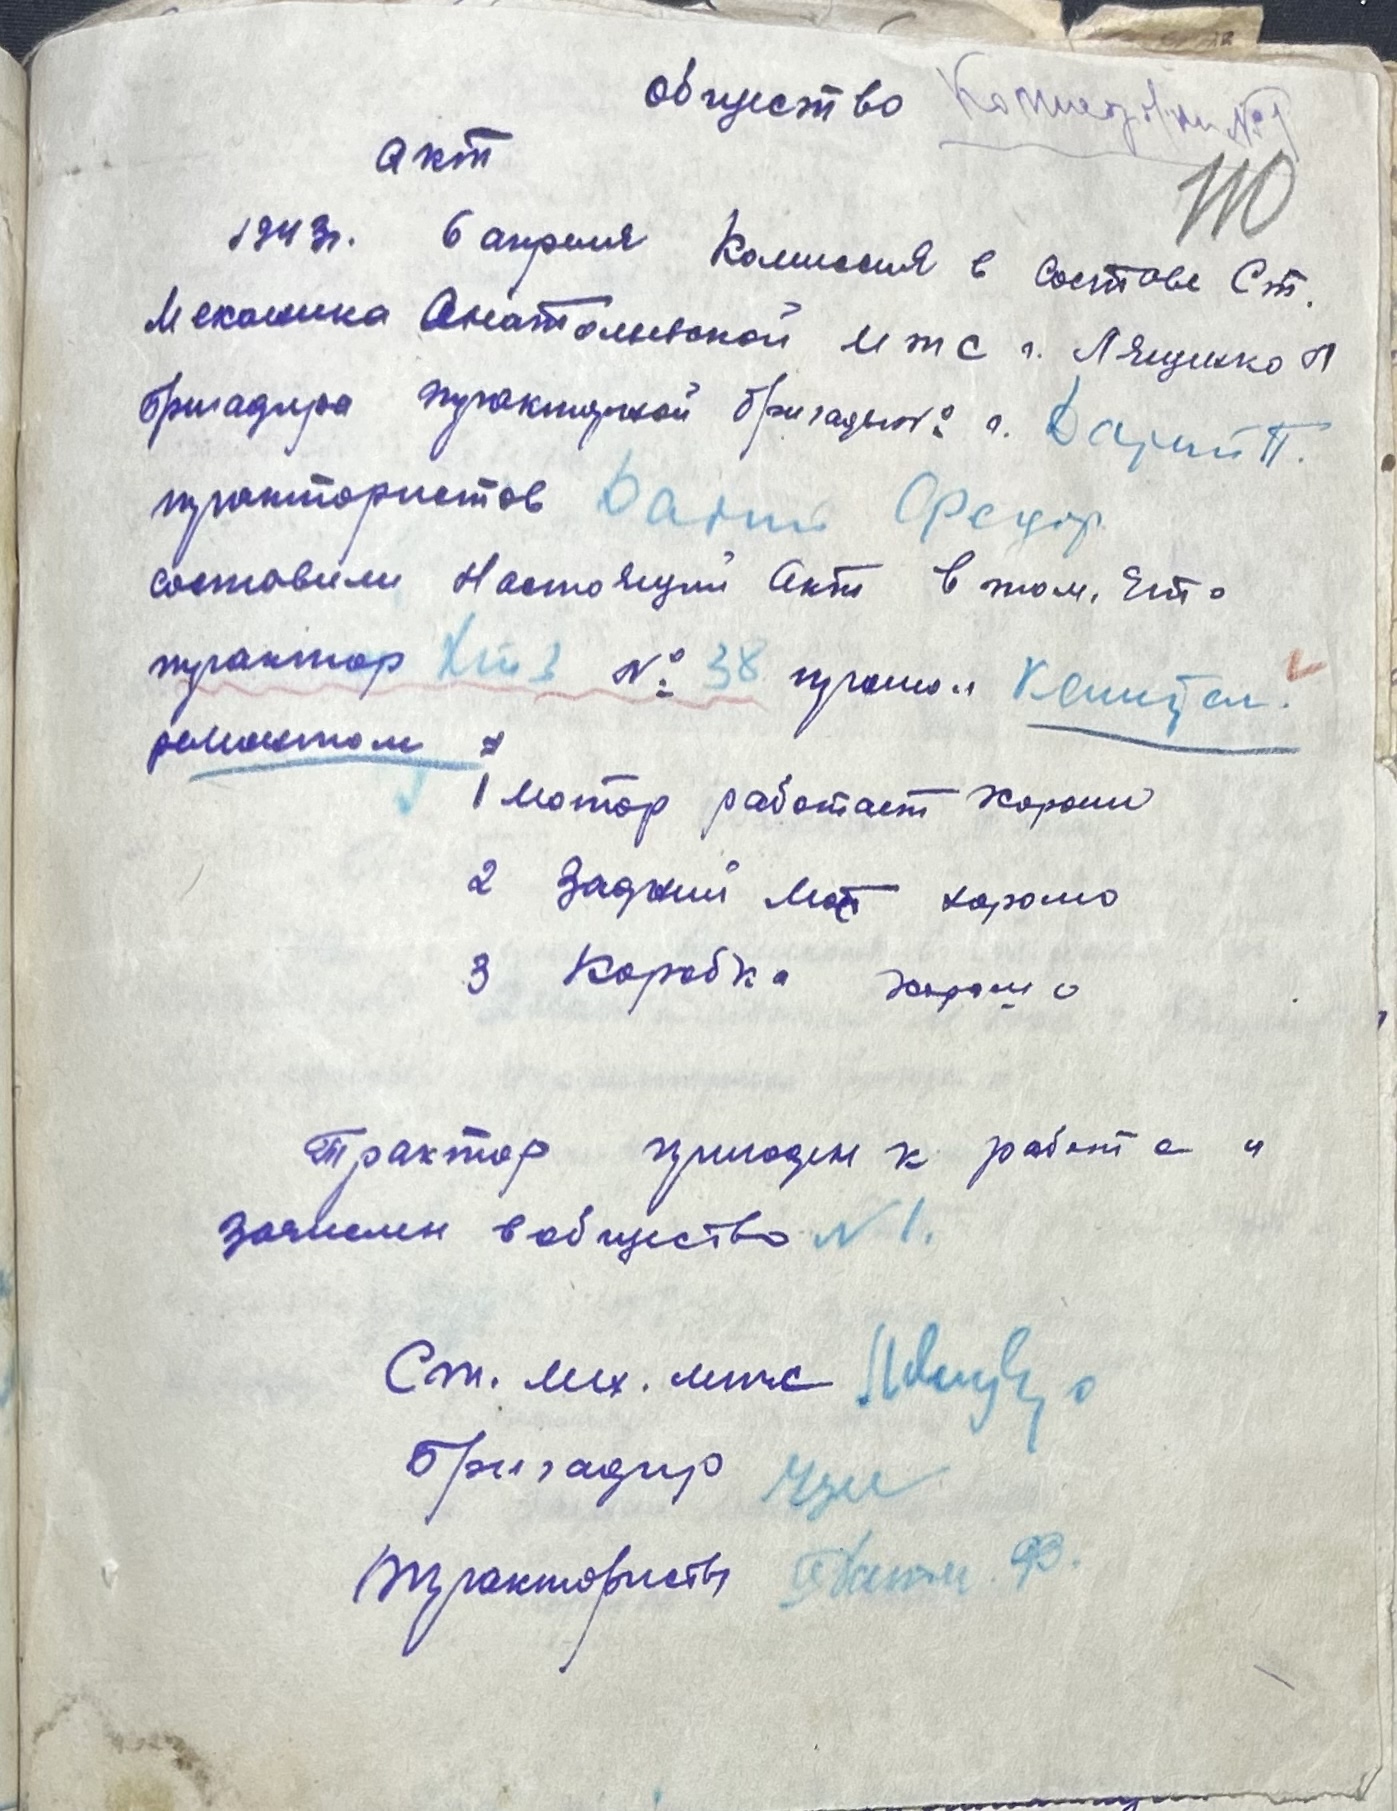 общество № 1
110
Акт
1943 г. 6 апреля Комиссия в составе Ст.
Механика Анатольевской мтс г. Лящико П
Бригадира тракторной бригады № г. П.
трактористов Федор
составили Настоящий Акт в том, что
трактор ХТЗ № 38 прошол Капитал.
ремонтом
1 Мотор работает хорошо
2 Задний Мост хорошо
3 Коробка хорошо
Трактор пригоден к работе и
зачислен в общество N 1.
Ст. мех. мтс
Бригадир
Трактористы Ф.